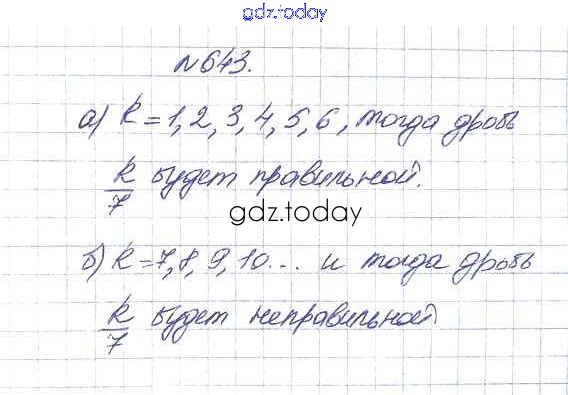 gdz.today
№643.
а) k = 1, 2, 3, 4, 5, 6, тогда дробь
k/7 будет правильной.
gdz.today
б) k = 7, 8, 9, 10... и тогда дробь
k/7 будет неправильной
gdz.today